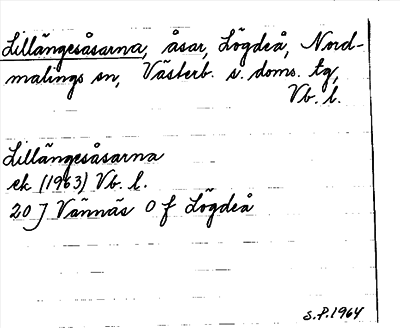 Lillängesåsarna, åsar, Lögdeå, Nord-
malings sn, Västerb. s. doms. tg,
Vb. l.
Lillängesåsarna
ek (1963) Vb. l.
20 J Vännäs O f Lögdeå
S.P. 1964